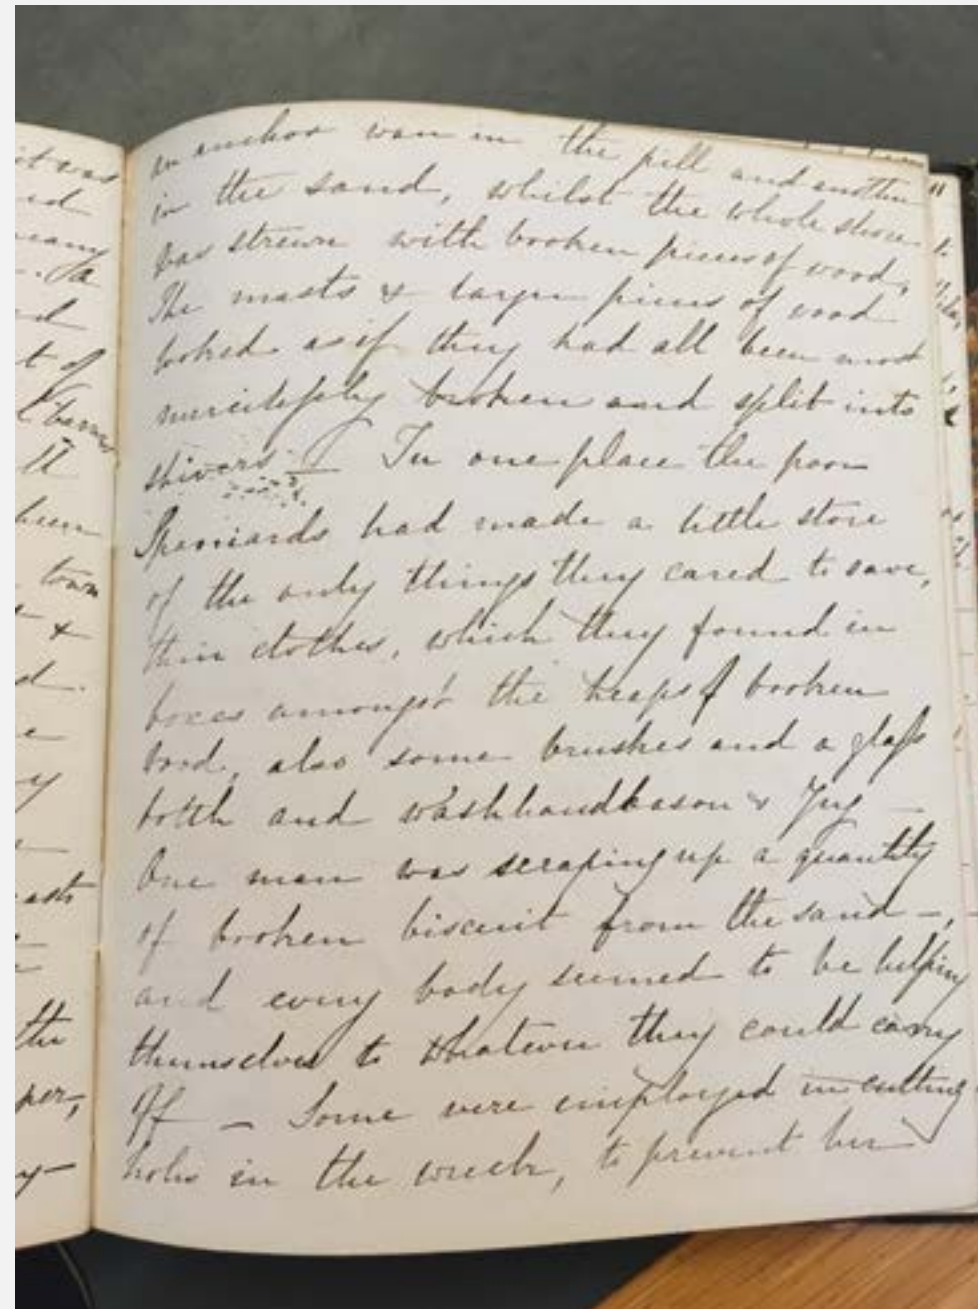 it was
an anchor was in the pill and another
in the sand, whilst the whole shore
was strewn with broken pieces of wood,
The masts & larger pieces of wood
looked as if they had all been most
mercilessly broken and split into
shivers. In one place the poor
Spaniards had made a little store
of the only things they cared to save,
their clothes, which they found in
boxes amongst the heaps of broken
wood, also some brushes and a glass
bottle and washhandbason & Jug —
One man was scraping up a quantity
of broken biscuit from the sand —,
and every body seemed to be helping
themselves to whatever they could carry
off — Some were employed in cutting
holes in the wreck, to prevent her